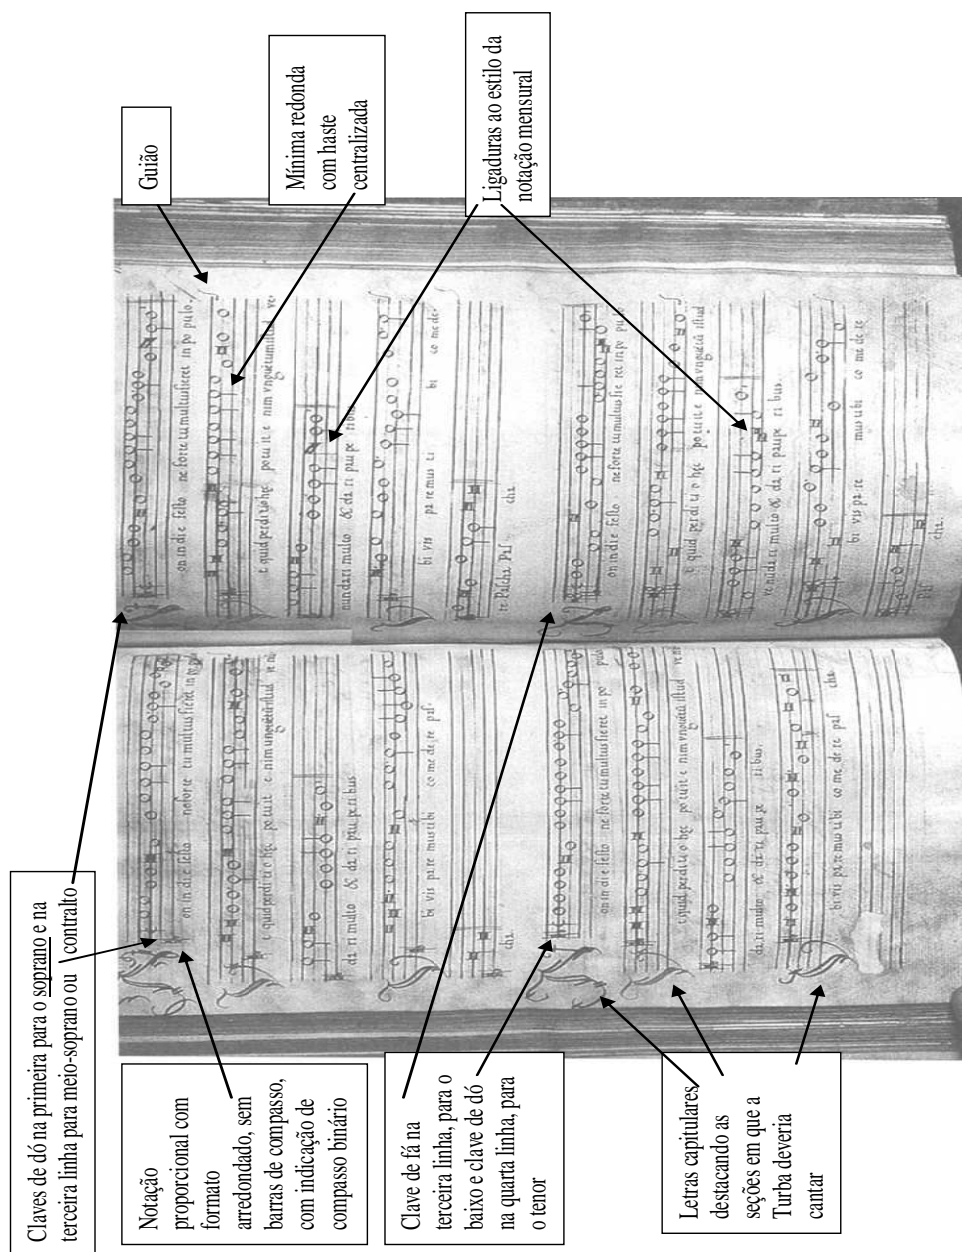 Claves de dó na primeira para o soprano e na
terceira linha para meio-soprano ou contralto
Notação
proporcional com
formato
arredondado, sem
barras de compasso,
com indicação de
compasso binário
Clave de fá na
terceira linha, para o
baixo e clave de dó
na quarta linha, para
o tenor
Letras capitulares
destacando as
seções em que a
Turba deveria
cantar
Guião
Mínima redonda
com haste
centralizada
Ligaduras ao estilo da
notação mensural
on in die festo ne forte tu multus fieret in po
t quid perdi ti o hęc po tu it e nim unguētū istud ve
da ri multo & da ri pau pe ri bus
bi vis pa re mus ti bi co me de re pas
cha
on in di e festo ne forte tu multus fieret in po pulo
t quid perdi ti o hęc po tu it e nim vnguētū istud ve ni
da ri multo & da ri pau pe ri bus.
bi vis pa re mus ti bi co me de re pas cha
on in di e festo ne forte tu multus fieret in po pulo.
t quid perdi ti o hęc po tu it e nim vnguētum istud ve
nun da ri multo & da ri pau pe ri bus
bi vis pa re mus ti bi co me de
re Pascha Pas cha
on in di e festo ne forte tu multus fie ret in po pu lo
t quid perdi ti o hęc po tu it e nim vnguētū istud
ve nū da ri multo & da ri pau pe ri bus.
bi vis pa re mus ti bi co me de re
Pas cha